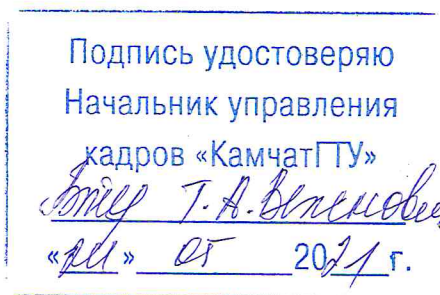 Подпись удостоверяю
Начальник управления
кадров «КамчатГТУ»
Т.А.
« » 05 2021 г.